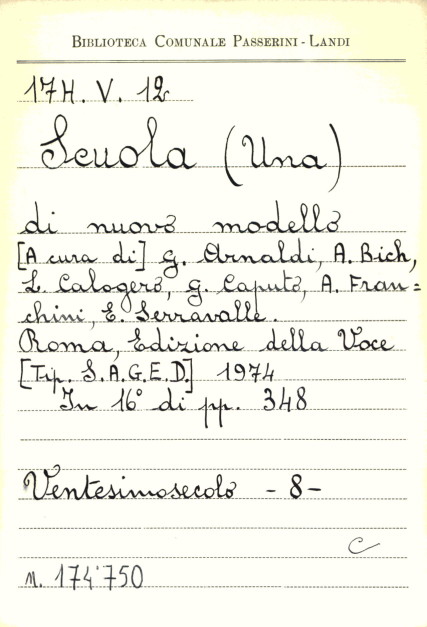 BIBLIOTECA COMUNALE PASSERINI - LANDI
17H. V. 12
Scuola (Una)
di nuovo modello
[A cura di] G. Arnaldi, A. Bich,
L. Calogero, G. Caputo, A. Fran=
chini, E. Serravalle.
Roma, Edizione della Voce
[Tip. S.A.G.E.D.] 1974
In 16° di pp. 348
Ventesimosecolo - 8 -
C
n. 174'750